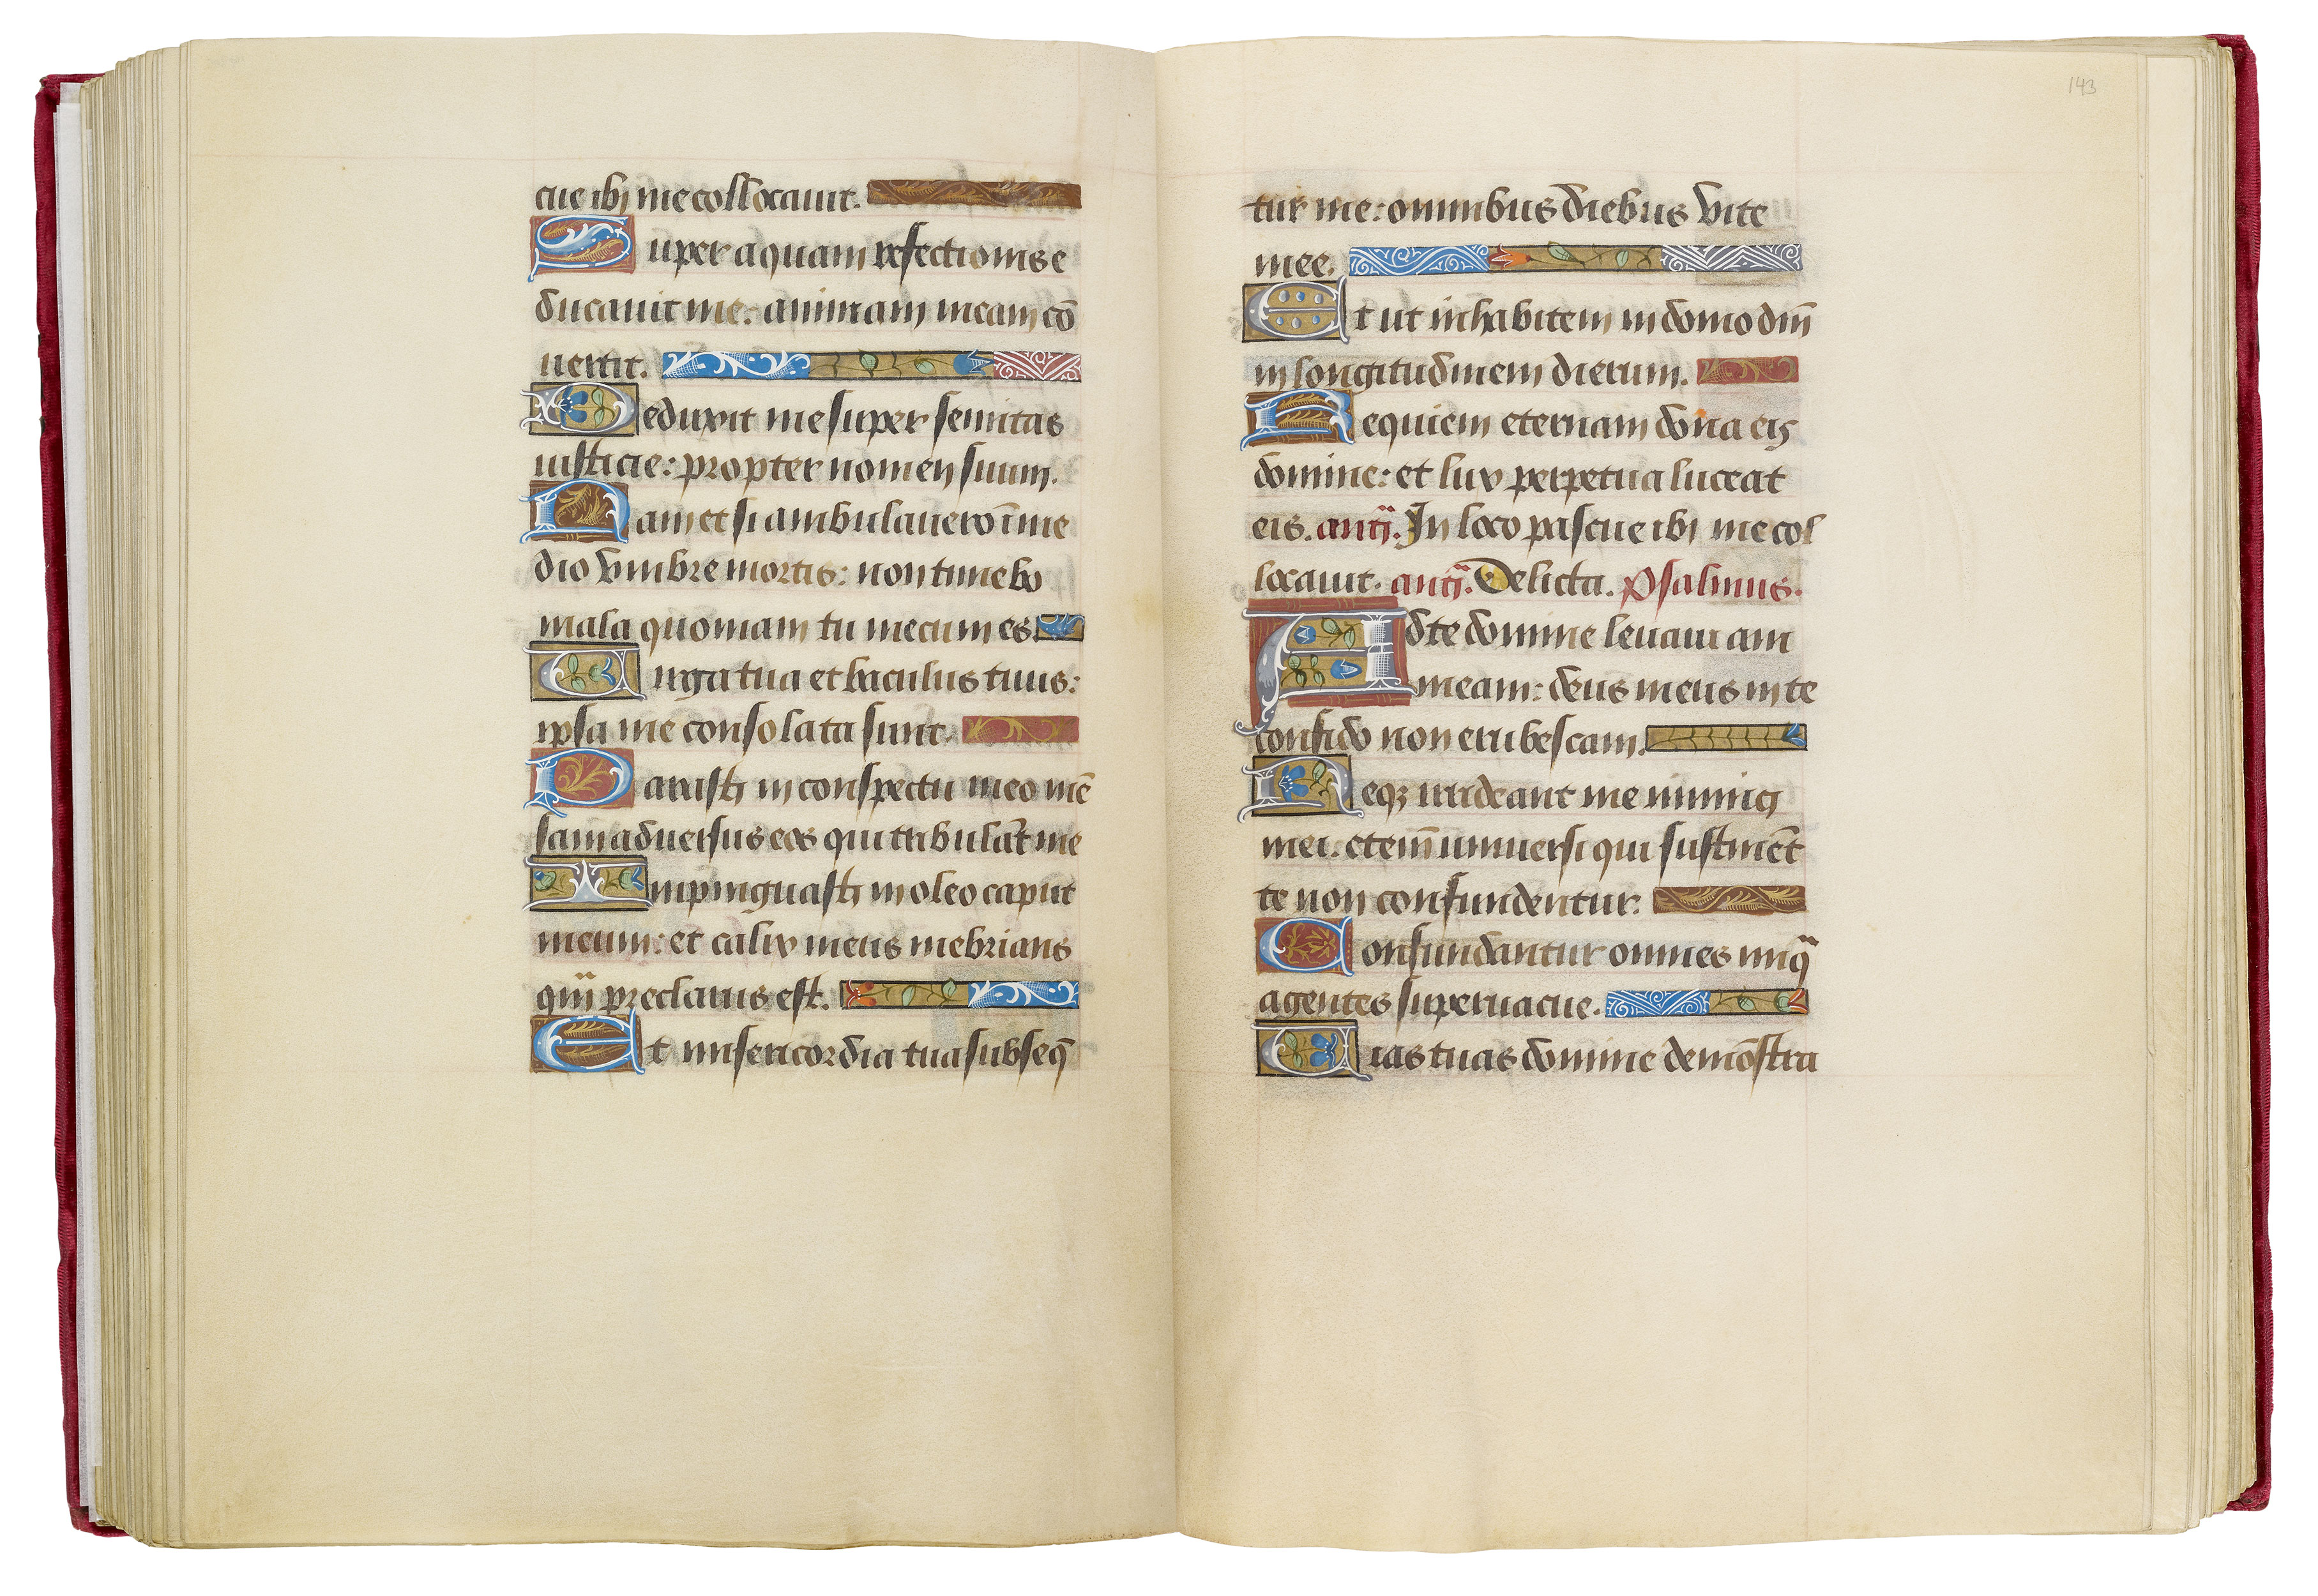 cue ibi me collocauit.
Super aquam refectionis e
ducauit me: animam meam cō
uertit.
Deduxit me super semitas
iusticie: propter nomen suum.
Nam et si ambulauero ī me
dio vmbre mortis: non timebo
mala quoniam tu mecum es.
Uirga tua et baculus tuus:
ipsa me consolata sunt.
Parasti in conspectu meo mē
sam aduersus eos qui tribulāt me
Inpinguasti in oleo caput
meum: et calix meus inebrians
qm̄ preclarus est.
Et misericordia tua subseq̄
143
tur me: omnibus diebus vite
mee.
Et ut inhabitem in domo dnī
in longitudinem dierum.
Requiem eternam dona eis
domine: et lux perpetua luceat
eis. antͥ. In loco pascue ibi me col
locauit. antͥ. Delicta. Psalmus.
Ad te domine leuaui am
meam: deus meus in te
confido non erubescam.
Neqꝫ irrideant me inimici
mei. etenī uniuersi qui sustinēt
te non confundentur.
Confundantur omnes iniq̄
agentes superuacue.
Uias tuas domine demōstra